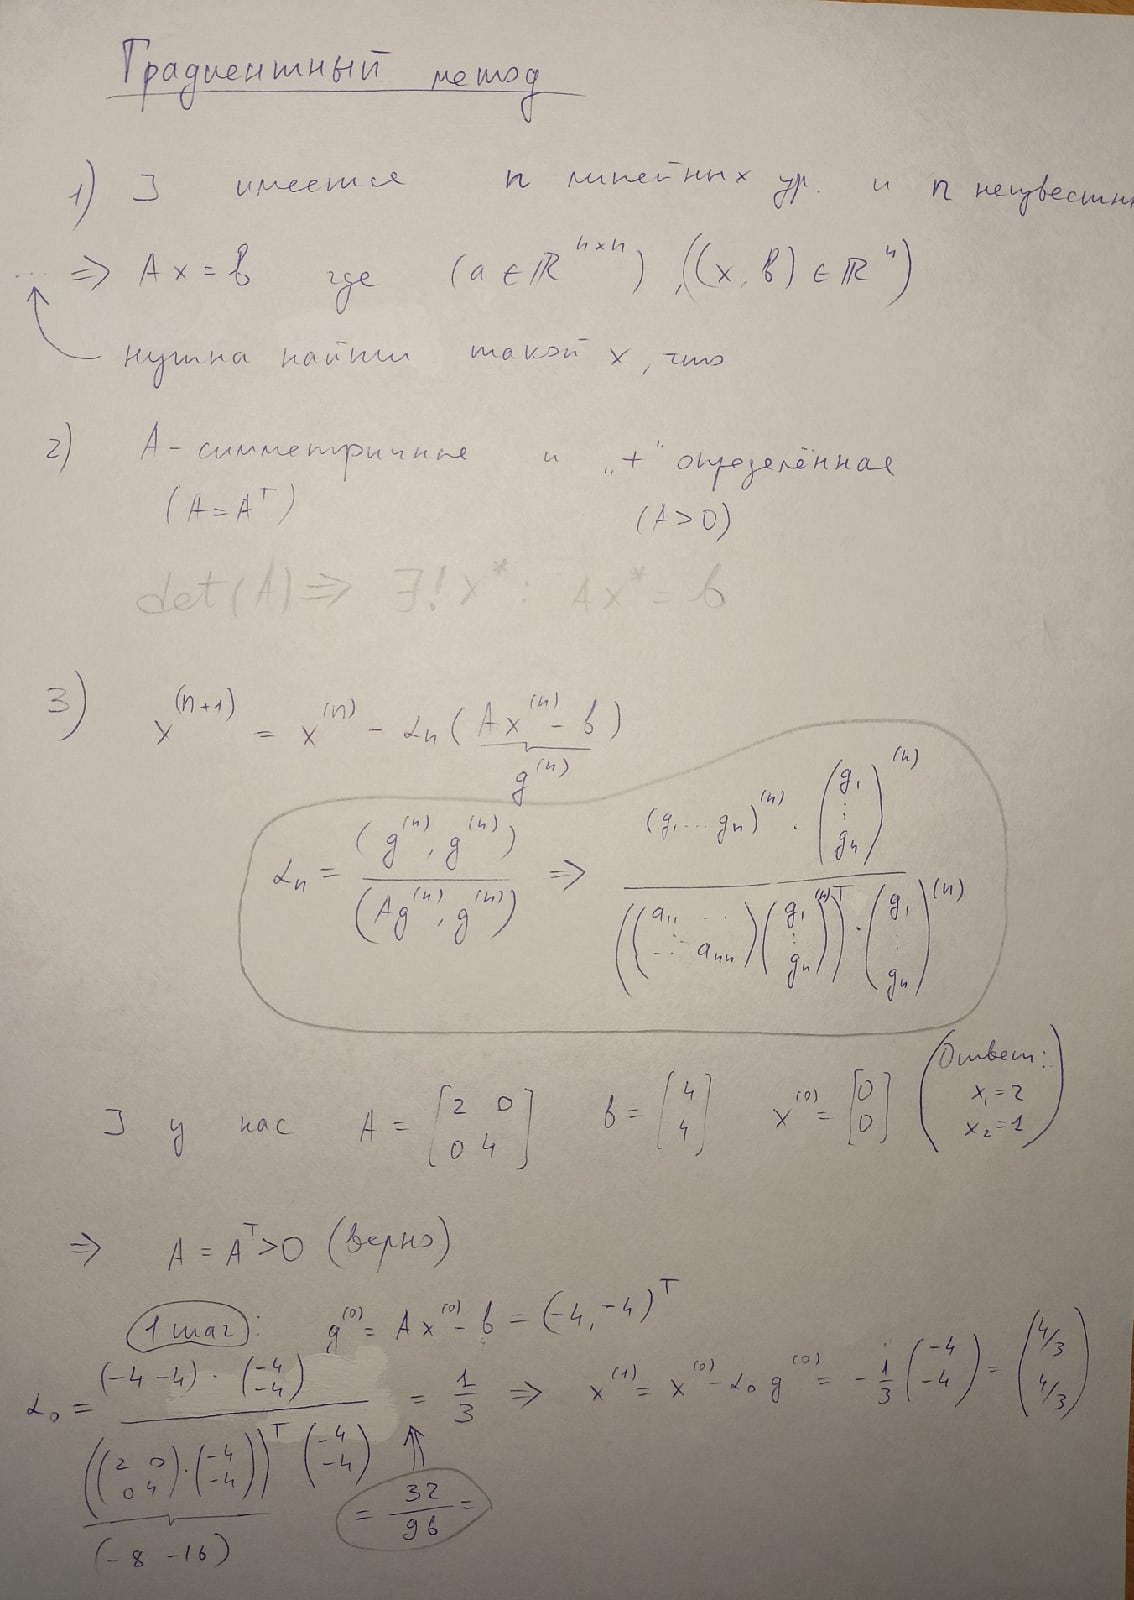 Градиентный метод
1) ] имеется n линейных ур. и n неизвестн
... ⇒ Ax = b где (a ∈ ℝ^{n×n}), ((x, b) ∈ ℝ^n)
нужна найти такой x, что
2) A - симметричные и „+" определённая
(A = A^T) (A > 0)
det(A) ⇒ ∃! x* : Ax* = b
3) x^{(n+1)} = x^{(n)} - α_n (Ax^{(n)} - b)
g^{(n)}
α_n = (g^{(n)}, g^{(n)}) / (Ag^{(n)}, g^{(n)}) ⇒ (g_1 ... g_n)^{(n)} · (g_1 ⋮ g_n)^{(n)} / ((a_{11} ... ... a_{nn}) (g_1 ⋮ g_n)^{(n)})^T · (g_1 ⋮ g_n)^{(n)}
] у нас A = [2 0; 0 4] b = [4; 4] x^{(0)} = [0; 0] (Ответ: x_1 = 2 x_2 = 1)
⇒ A = A^T > 0 (верно)
1 шаг: g^{(0)} = Ax^{(0)} - b = (-4, -4)^T
α_0 = (-4 -4) · (-4; -4) / ((2 0; 0 4) · (-4; -4))^T (-4; -4) = 1/3 ⇒ x^{(1)} = x^{(0)} - α_0 g^{(0)} = -1/3 (-4; -4) = (4/3; 4/3)
= 32/96 =
(-8 -16)